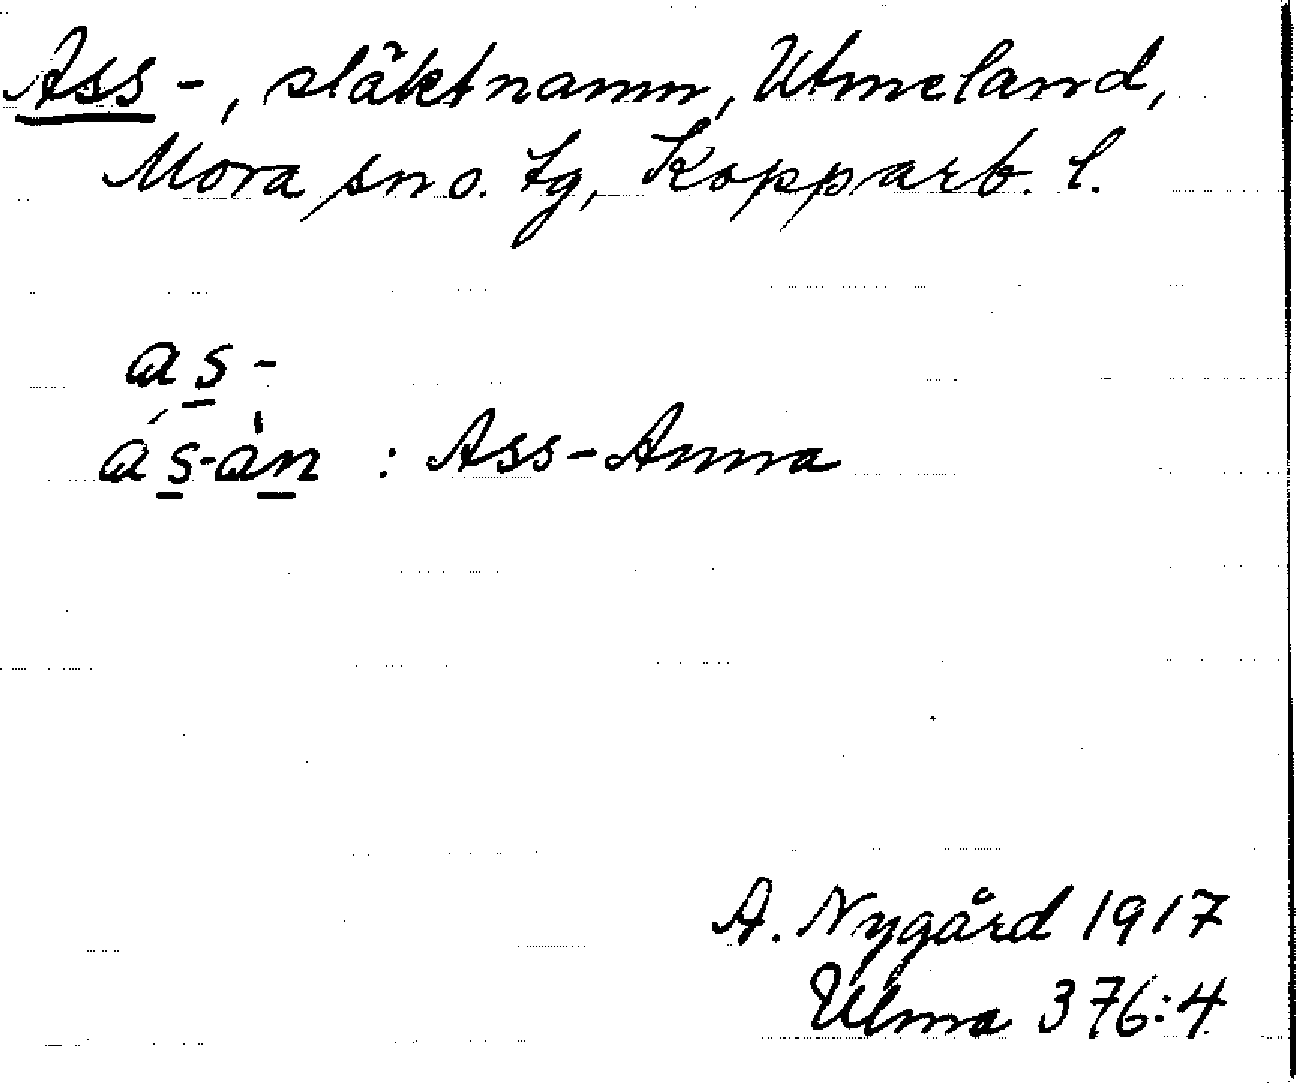 Ass-, släktnamn, Utmeland,
Mora sn o. tg, Kopparb. l.
as-
ás-àn : Ass-Anna
A. Nygård 1917
Ulma 376:4